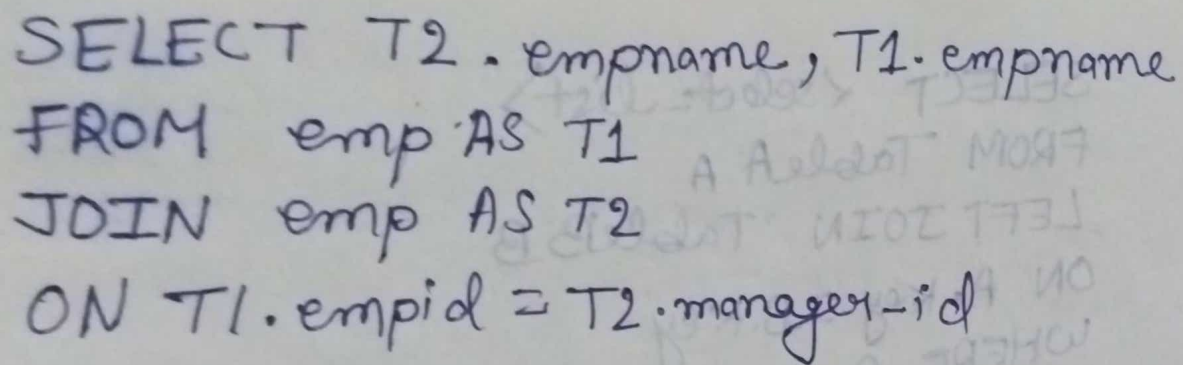 SELECT T2.empname, T1.empname
FROM emp AS T1
JOIN emp AS T2
ON T1.empid = T2.manager-id